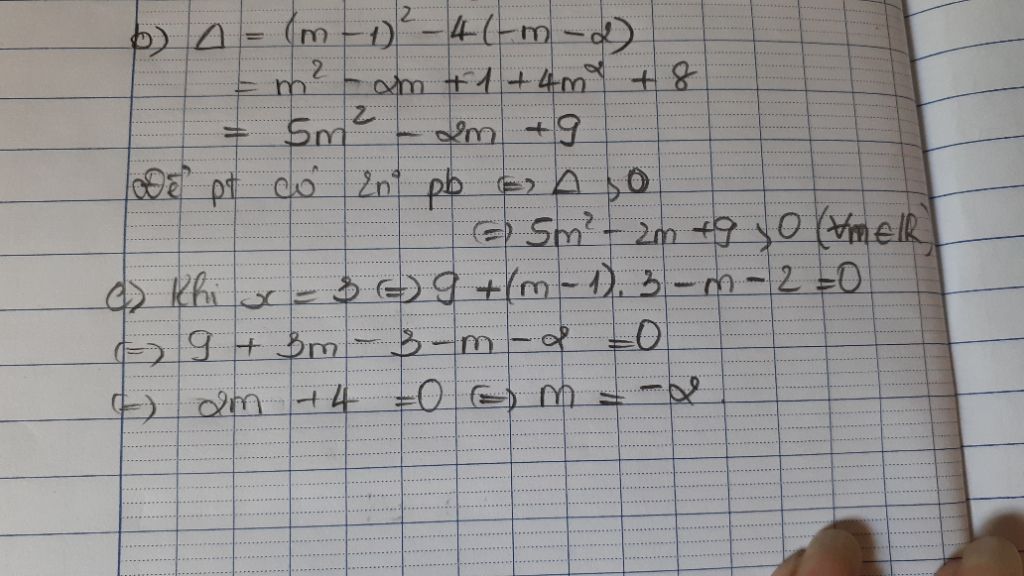 b) Δ = (m - 1)² - 4(-m - 2)
= m² - 2m + 1 + 4m² + 8
= 5m² - 2m + 9
Để pt có 2n⁰ pb ⇔ Δ > 0
⇔ 5m² - 2m + 9 > 0 (∀m ∈ ℝ)
c) Khi x = 3 ⇔ 9 + (m - 1). 3 - m - 2 = 0
⇔ 9 + 3m - 3 - m - 2 = 0
⇔ 2m + 4 = 0 ⇔ m = -2